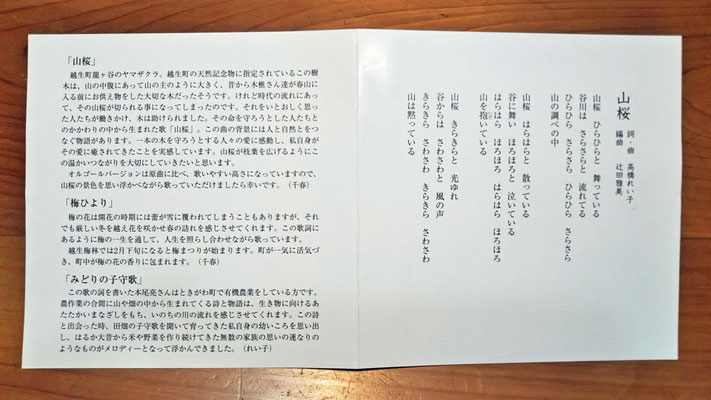 「山桜」
越生町龍ヶ谷のヤマザクラ。越生町の天然記念物に指定されているこの樹
木は、山の中腹にあって山の主のように大きく、昔から木樵さん達が春山に
入る前にお供え物をした大切な木だったそうです。けれど時代の流れにあっ
て、その山桜が切られる事になってしまったのです。それをいとおしく思っ
た人たちが働きかけ、木は助けられました。その命を守ろうとした人たちと
のかかわりの中から生まれた歌「山桜」。この曲の背景には人と自然とをつ
なぐ物語があります。一本の木を守ろうとする人々の愛に感動し、私自身が
その愛に癒されてきたことを実感しています。山桜が枝葉を広げるようにこ
の温かいつながりを大切にしていきたいと思います。
オルゴールバージョンは原曲に比べ、歌いやすい高さになっていますので、
山桜の景色を思い浮かべながら歌っていただけましたら幸いです。(千春)
「梅ひより」
梅の花は開花の時期には蕾が雪に覆われてしまうこともありますが、それ
でも厳しい冬を越え花を咲かせ春の訪れを感じさせてくれます。この歌詞に
あるように梅の一生を通して、人生を照らし合わせながら歌っています。
越生梅林では2月下旬になると梅まつりが始まります。町が一気に活気づ
き、町中が梅の花の香りに包まれます。(千春)
「みどりの子守歌」
この歌の詞を書いた本尾亮さんはときがわ町で有機農業をしている方です。
農作業の合間に山や畑の中から生まれてくる詩と物語は、生き物に向けるあ
たたかいまなざしをもち、いのちの川の流れを感じさせてくれます。この詩
と出会った時、田畑の子守歌を聞いて育ってきた私自身の幼いころを思い出
し、はるか大昔から米や野菜を作り続けてきた無数の家族の思いの連なりの
ようなものがメロディーとなって浮かんできました。(れい子)
山桜
詞・曲 高橋れい子
編曲 辻田雅美
山桜 ひらひらと 舞っている
谷川は さらさらと 流れてる
ひらひら さらさら ひらひら さらさら
山の調べの中
山桜 はらはらと 散っている
谷に舞い ほろほろと 泣いている
はらはら ほろほろ はらはら ほろほろ
山を抱いている
山桜 きらきらと 光ゆれ
谷からは さわさわと 風の声
きらきら さわさわ きらきら さわさわ
山は黙っている